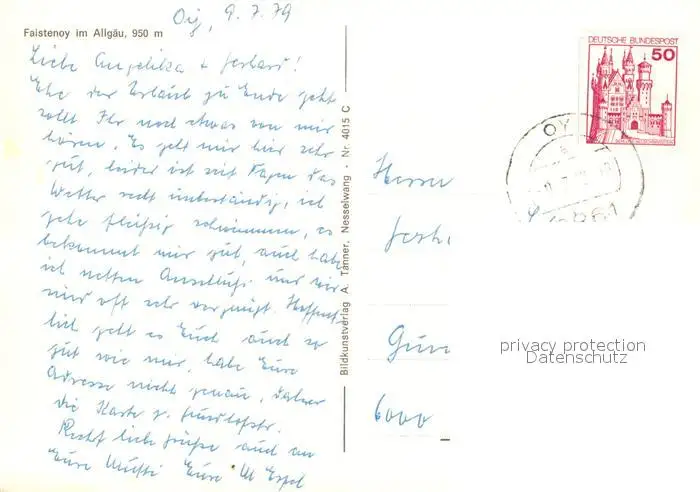 Oy, 9.7.79
Faistenoy im Allgäu, 950 m
Liebe Angelika + Gerhard!
Ehe der Urlaub zu Ende geht
sollt Ihr noch etwas von mir
hören. Es geht mir hier sehr
gut, leider ist seit Tagen das
Wetter recht unbeständig, ich
gehe fleißig schwimmen, es
bekommt mir gut, auch habe
ich netten Anschluß und wir
sind oft sehr vergnügt. Hoffent-
lich geht es Euch auch so
gut wie mir, habe Eure
Adresse nicht genau, daher
die Karte z.
Recht liebe Grüße auch an
Eure Mutti Eure
Bildkunstverlag A. Tanner, Nesselwang · Nr. 4015 C
DEUTSCHE BUNDESPOST
50
OY
8961
Herrn
Gerh
6000
privacy protection
Datenschutz